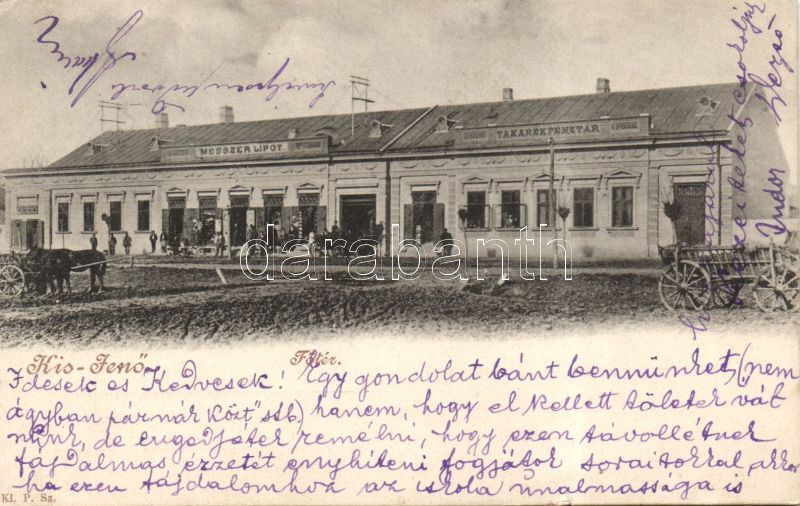 MESSZER LIPÓT.
TAKARÉKPÉNZTÁR
darabanth
Kis-Jenő
Főtér.
Édesek és Kedvesek! Egy gondolat bánt bennünket, (nem
ágyban párnák közt "stb) hanem, hogy el kellett tőletek vál
nunk, de engedjétek remélni, hogy ezen távollétnek
fájdalmas érzetét enyhíteni fogjátok soraitokkal, akkor
ha ezen fájdalomhoz az iskola unalmassága is
Kl. P. Sz.
csókolják
Dezső
Tudor